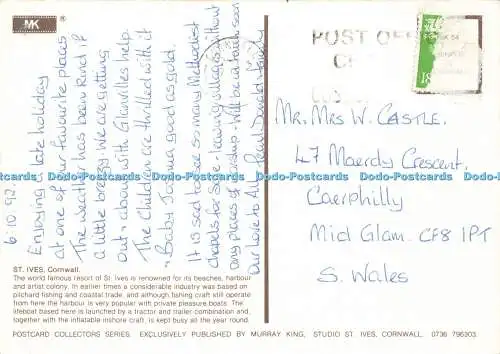 MK
6.10.92.
Enjoying a late holiday
at one of our favourite places
The weather has been kind if
a little breezy. We are getting
out & about with Glanvilles help.
The children are thrilled with it
& Baby Joanne good as gold.
It is sad to see so many Methodist
chapels for sale - leaving villages without
any places of worship. Will be in touch soon
Our love to All. Pearl Donald & family
POST OFF
Mr. Mrs W. CASTLE.
47 Maerdy Crescent,
Caerphilly
Mid Glam. CF8 1PT
S. Wales
ST. IVES, Cornwall.
The world famous resort of St. Ives is renowned for its beaches, harbour
and artist colony. In earlier times a considerable industry was based on
pilchard fishing and coastal trade, and although fishing craft still operate
from here the harbour is very popular with private pleasure boats. The
lifeboat based here is launched by a tractor and trailer combination and,
together with the inflatable inshore craft, is kept busy all the year round.
POSTCARD COLLECTORS SERIES. EXCLUSIVELY PUBLISHED BY MURRAY KING, STUDIO ST. IVES, CORNWALL. 0736 796303.
Dodo-Postcards Dodo-Postcards Dodo-Postcards Dodo-Postcards Dodo-Postcards